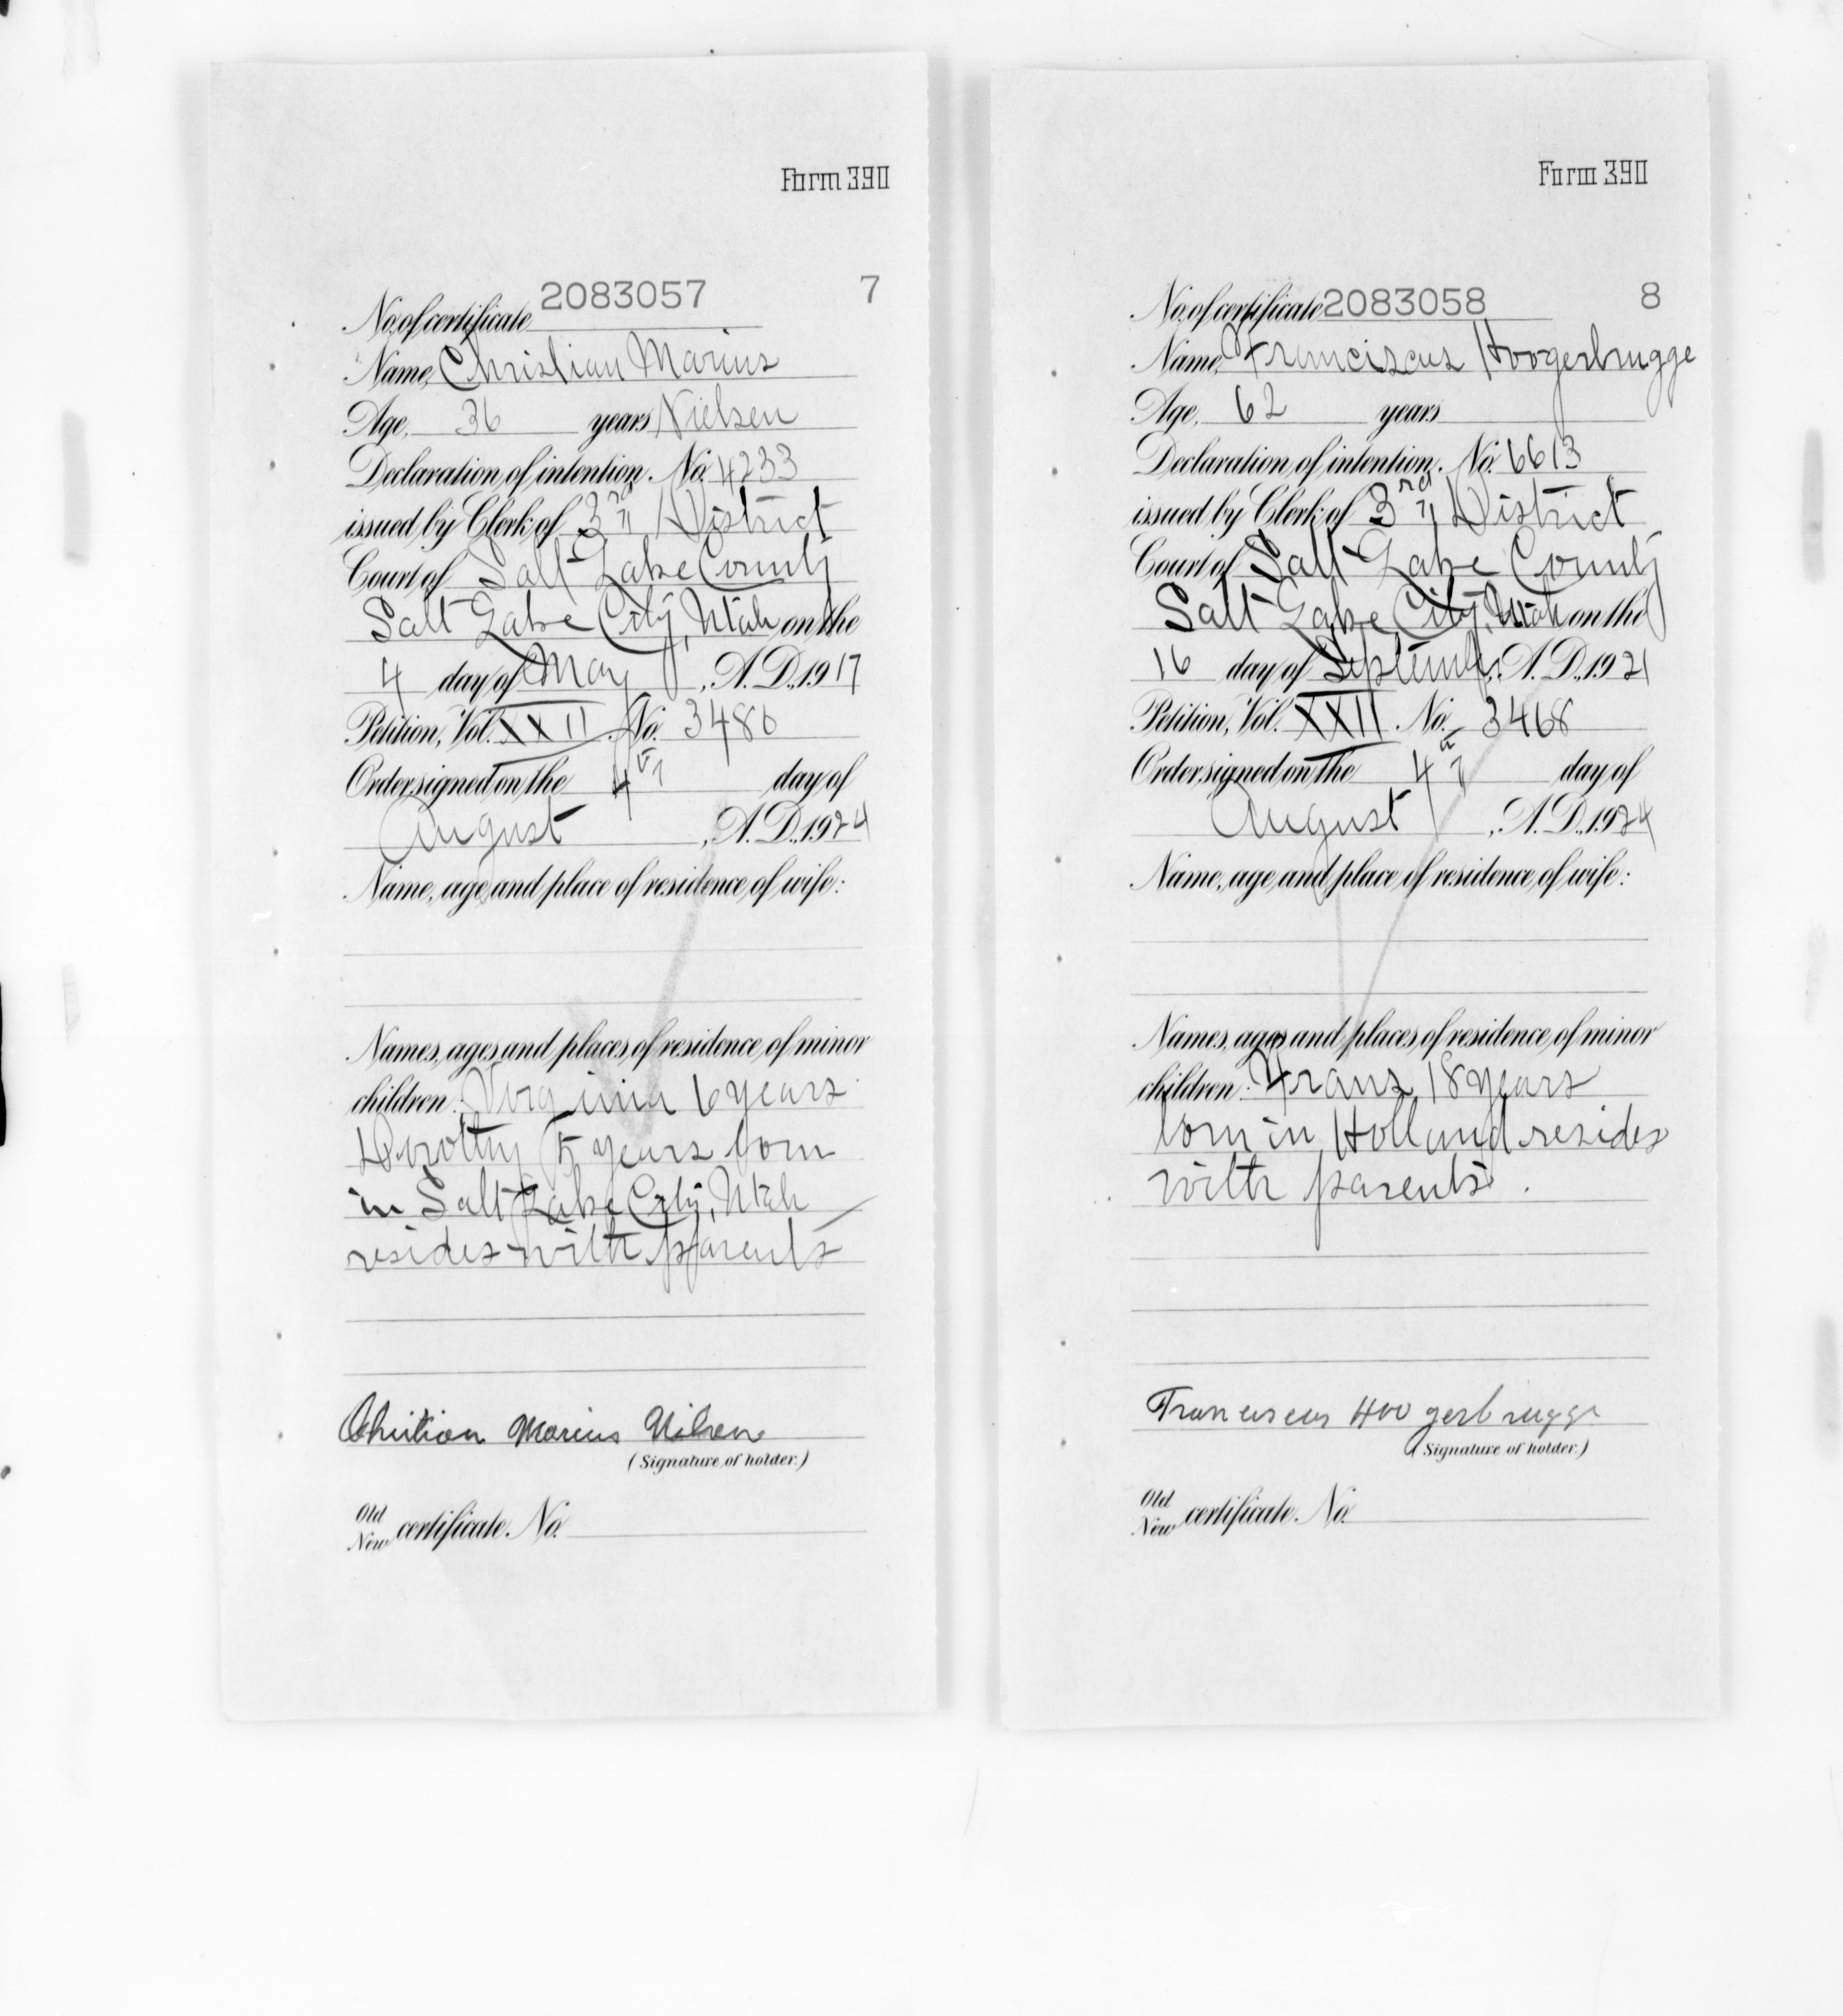 Form 390
No. of certificate 2083057 7
Name, Christian Marius
Age, 36 years Nielsen
Declaration of intention. No. 4233
issued by Clerk of 3rd District
Court of Salt Lake County
Salt Lake City, Utah on the
4 day of May, A.D. 1917
Petition, Vol. XXII No. 3480
Order signed on the 4th day of
August, A.D. 1924
Name, age, and place of residence of wife:
Names, ages and places of residence of minor
children: Virginia 6 years
Dorothy 5 years born
in Salt Lake City, Utah
resides with parents
Christian Marius Nilsen
(Signature of holder.)
Old
New certificate No.
Form 390
No. of certificate 2083058 8
Name, Franciscus Hoogerbrugge
Age, 62 years
Declaration of intention. No. 6613
issued by Clerk of 3rd District
Court of Salt Lake County
Salt Lake City, Utah on the
16 day of September, A.D. 1921
Petition, Vol. XXII. No. 3468
Order signed on the 4th day of
August, A.D. 1924
Name, age, and place of residence of wife:
Names, ages and places of residence of minor
children: Frans, 18 years
born in Holland resides
with parents.
Franciscus Hoogerbrugge
(Signature of holder.)
Old
New certificate No.